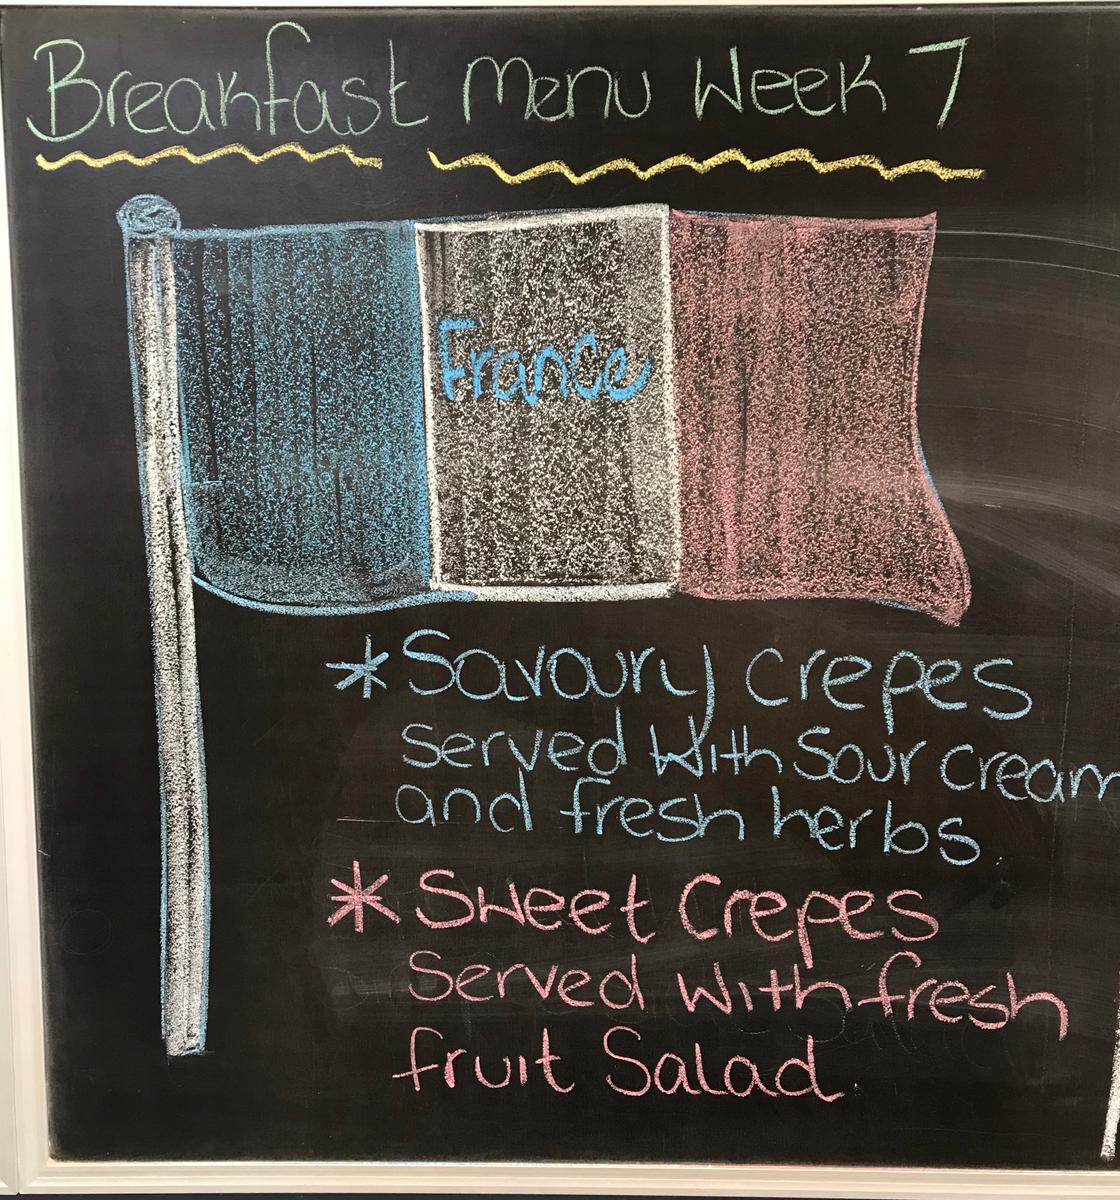 Breakfast Menu Week 7
France
*Savoury crepes
served with sour cream
and fresh herbs
*Sweet Crepes
Served with fresh
fruit Salad.